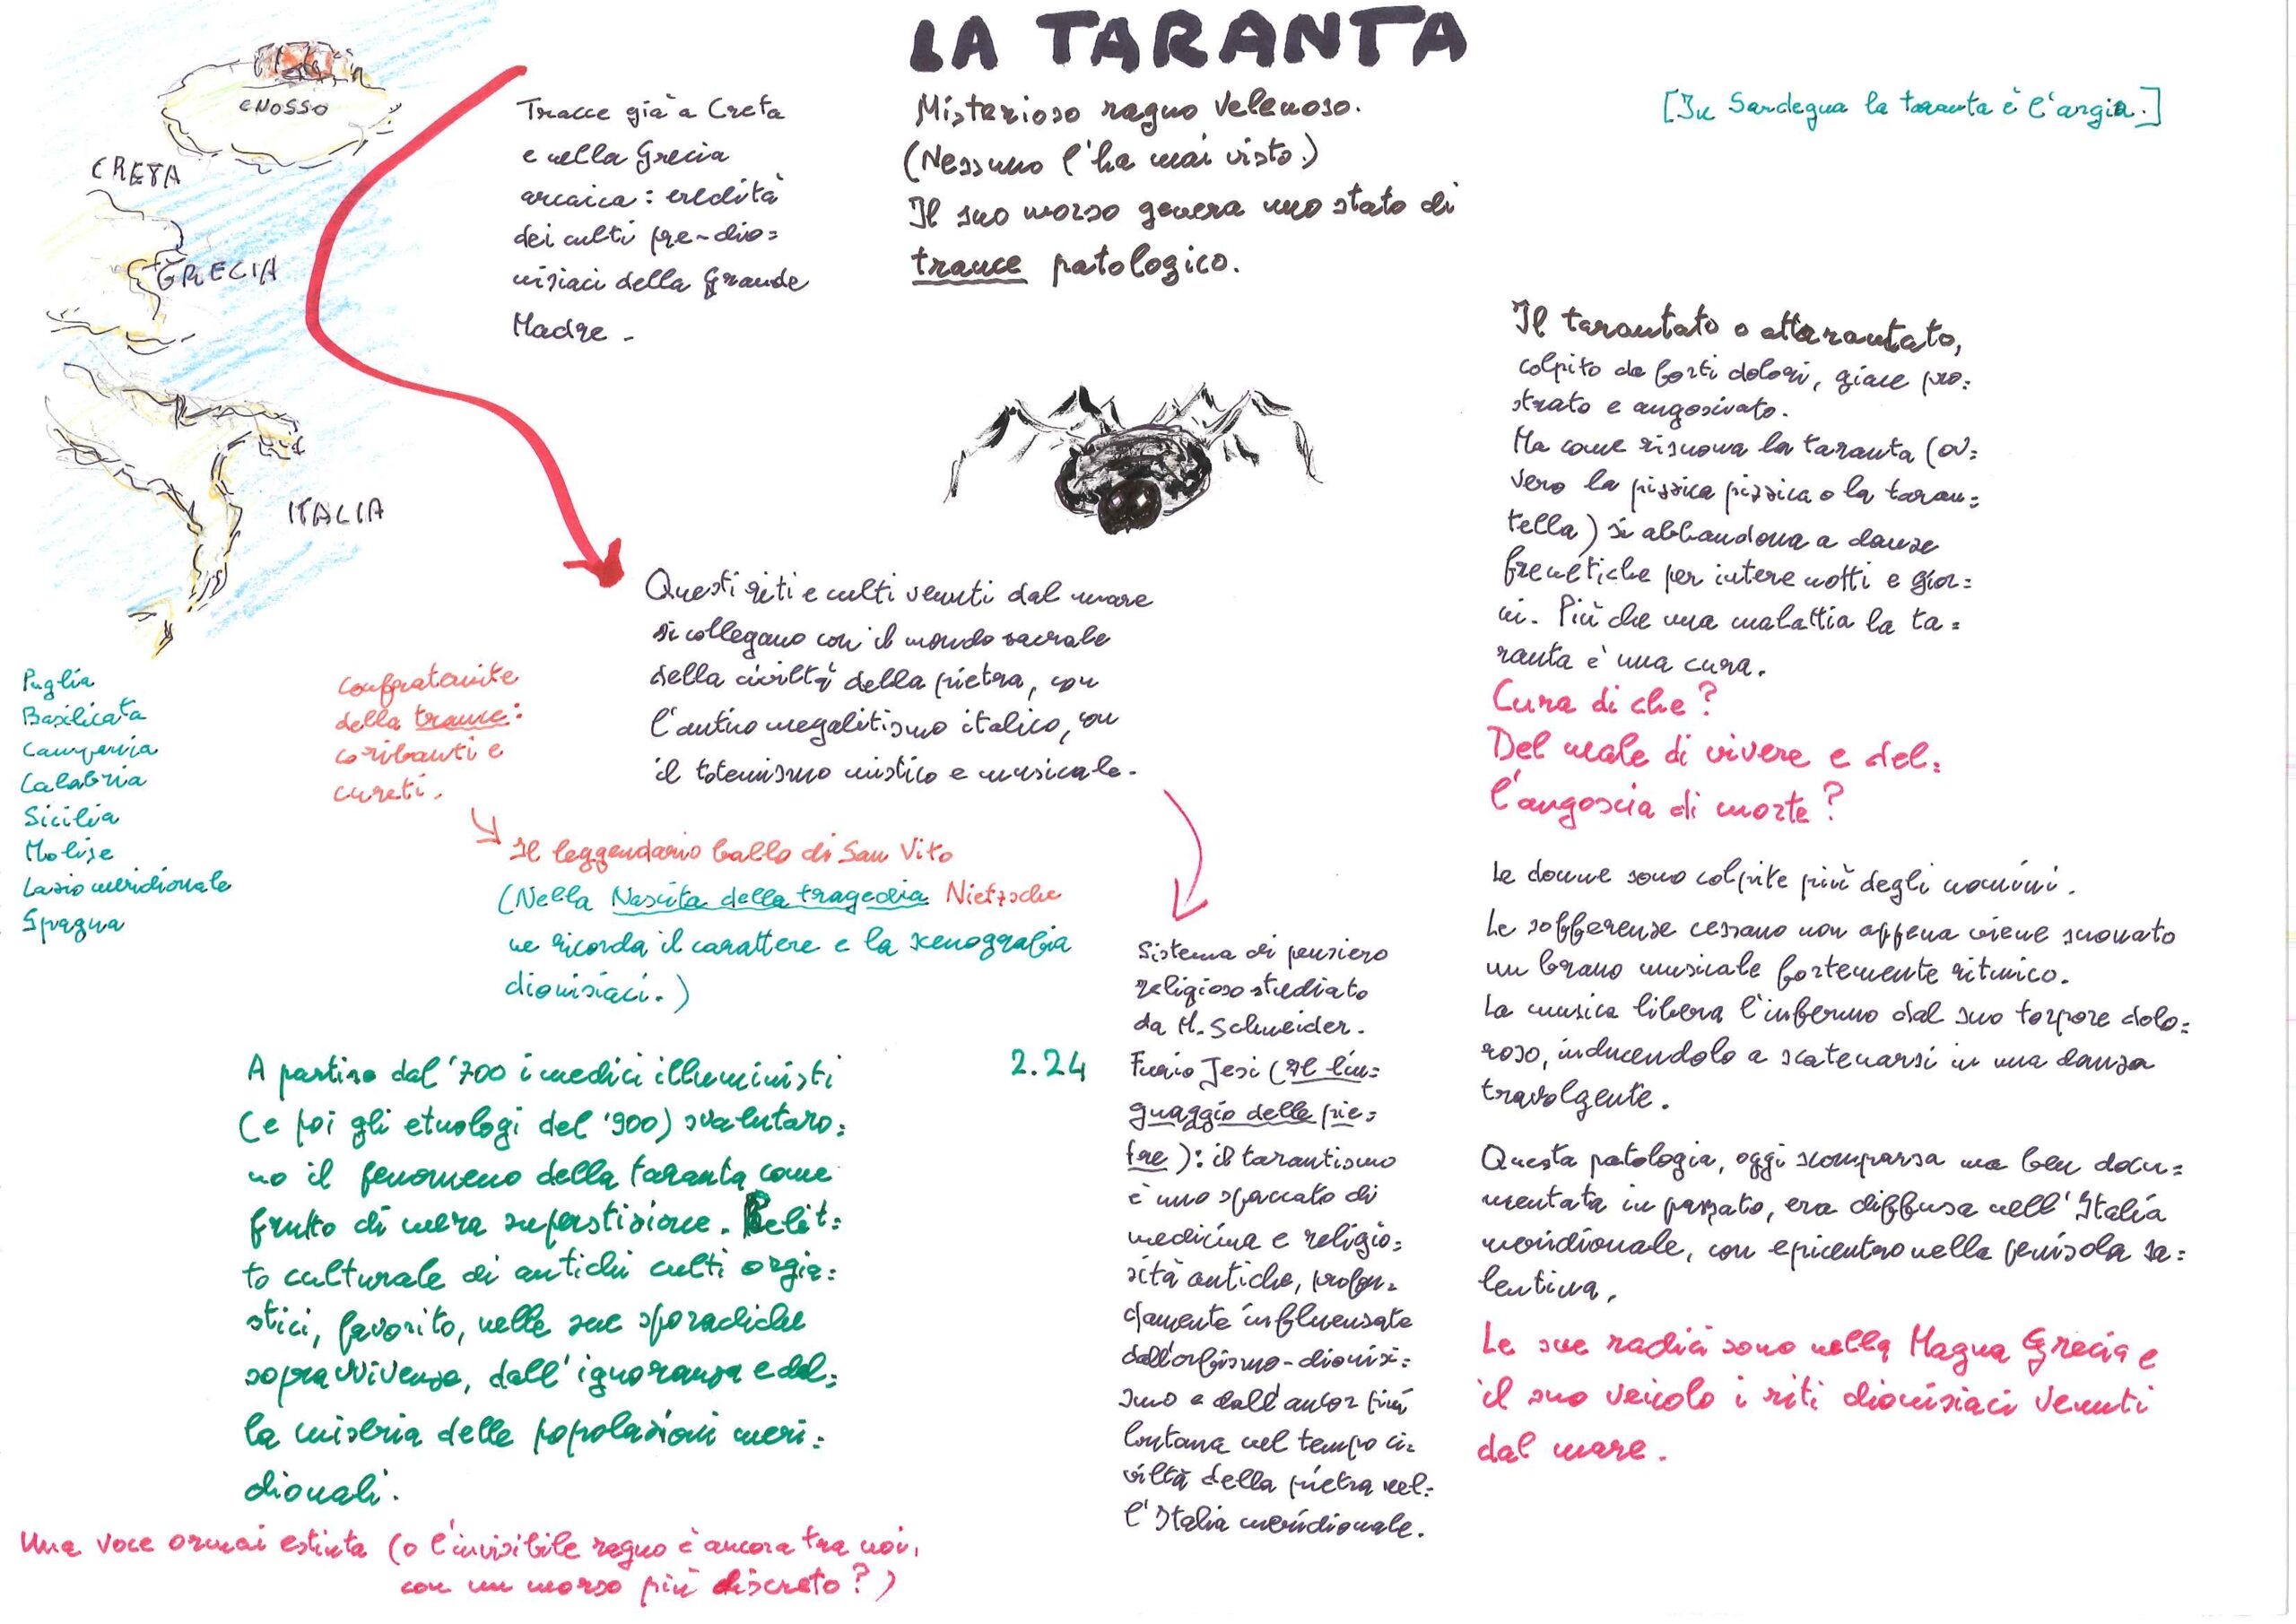 LA TARANTA
Misterioso ragno velenoso.
(Nessuno l'ha mai visto.)
Il suo morso genera uno stato di
trance patologico.
[In Sardegna la taranta è l'argia.]
CNOSSO
CRETA
GRECIA
ITALIA
Tracce già a Creta
e nella Grecia
arcaica: eredità
dei culti pre-dio=
nisiaci della Grande
Madre.
Questi riti e culti venuti dal mare
si collegano con il mondo sacrale
della civiltà della pietra, con
l'antico megalitismo italico, con
il totemismo mistico e musicale.
Puglia
Basilicata
Campania
Calabria
Sicilia
Molise
Lazio meridionale
Spagna
Confraternite
della trance:
coribanti e
cureti.
Il leggendario ballo di San Vito
(Nella Nascita della tragedia Nietzsche
ne ricorda il carattere e la scenografia
dionisiaci.)
A partire dal '700 i medici illuministi
(e poi gli etnologi del '900) svalutaro=
no il fenomeno della taranta come
frutto di mera superstizione. Relit=
to culturale di antichi culti orgia=
stici, favorito, nelle sue sporadiche
sopravvivenze, dall'ignoranza e dal=
la miseria delle popolazioni meri=
dionali.
Una voce ormai estinta (o l'invisibile ragno è ancora tra noi,
con un morso più discreto?)
2.24
Sistema di pensiero
religioso studiato
da M. Schneider.
Furio Jesi (Il lin=
guaggio delle pie=
tre): il tarantismo
è uno spaccato di
medicina e religio=
sità antiche, profon=
damente influenzate
dall'orfismo-dionisi=
smo e dall'ancor più
lontana nel tempo ci=
viltà della pietra nel=
l'Italia meridionale.
Il tarantato o attarantato,
colpito da forti dolori, giace pro=
strato e angosciato.
Ma come risuona la taranta (ov=
vero la pizzica pizzica o la taran=
tella) si abbandona a danze
frenetiche per intere notti e gior=
ni. Più che una malattia la ta=
ranta è una cura.
Cura di che?
Del male di vivere e del=
l'angoscia di morte?
Le donne sono colpite più degli uomini.
Le sofferenze cessano non appena viene suonato
un brano musicale fortemente ritmico.
La musica libera l'infermo dal suo torpore dolo=
roso, inducendolo a scatenarsi in una danza
travolgente.
Questa patologia, oggi scomparsa ma ben docu=
mentata in passato, era diffusa nell'Italia
meridionale, con epicentro nella penisola sa=
lentina.
Le sue radici sono nella Magna Grecia e
il suo veicolo i riti dionisiaci venuti
dal mare.